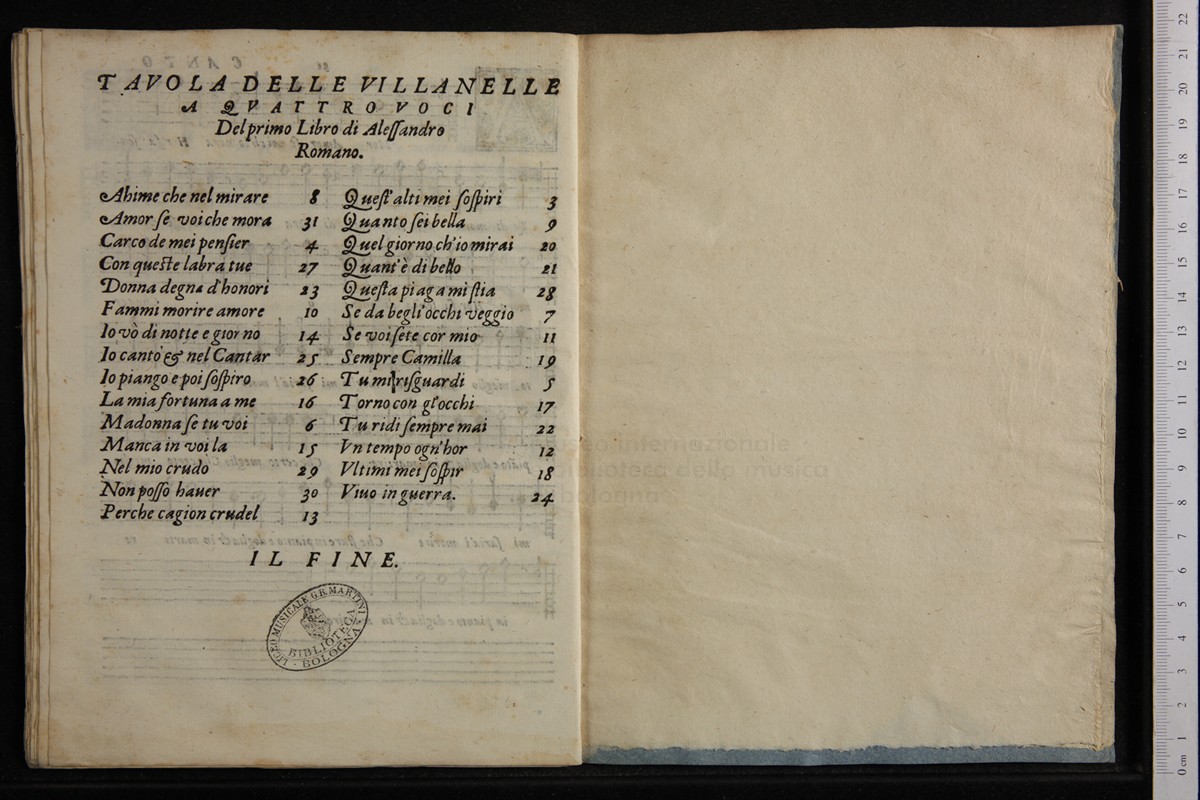 TAVOLA DELLE VILLANELLE
A QVATTRO VOCI
Del primo Libro di Alessandro
Romano.
Ahime che nel mirare 8
Amor se voi che mora 31
Carco de mei pensier 4
Con queste labra tue 27
Donna degna d'honori 23
Fammi morire amore 10
Io vò di notte e giorno 14
Io canto & nel Cantar 25
Io piango e poi sospiro 26
La mia fortuna a me 16
Madonna se tu voi 6
Manca in voi la 15
Nel mio crudo 29
Non posso hauer 30
Perche cagion crudel 13
Quest'alti mei sospiri 3
Quanto sei bella 9
Quel giorno ch'io mirai 20
Quant'è di bello 21
Questa piaga mi stia 28
Se da begli'occhi veggio 7
Se voi sete cor mio 11
Sempre Camilla 19
Tu mi risguardi 5
Torno con gl'occhi 17
Tu ridi sempre mai 22
Vn tempo ogn'hor 12
Vltimi mei sospir 18
Viuo in guerra. 24
IL FINE.
LICEO MUSICALE G.B. MARTINI
BIBLIOTECA
BOLOGNA
museo internazionale
biblioteca della musica
bologna
0 cm 1 2 3 4 5 6 7 8 9 10 11 12 13 14 15 16 17 18 19 20 21 22